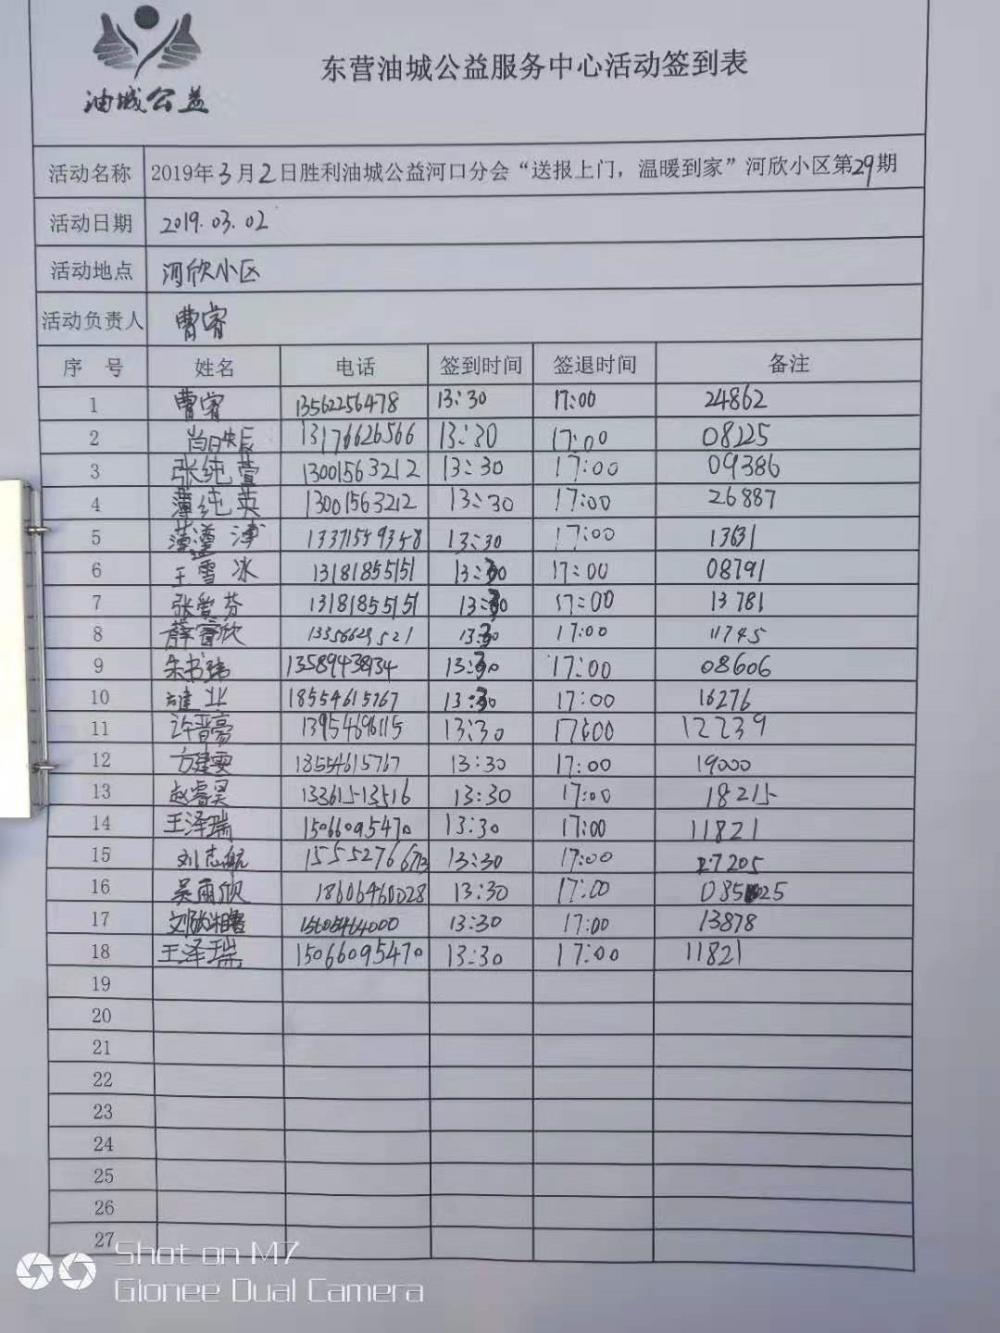 油城公益
东营油城公益服务中心活动签到表
活动名称 2019年3月2日胜利油城公益河口分会“送报上门，温暖到家”河欣小区第29期
活动日期 2019.03.02
活动地点 河欣小区
活动负责人 曹睿
序 号 姓名 电话 签到时间 签退时间 备注
1 曹睿 13562256478 13:30 17:00 24862
2 13176626566 13:30 17:00 08225
3 张纯萱 13001563212 13:30 17:00 09386
4 薄纯英 13001563212 13:30 17:00 26887
5 13371549358 13:30 17:00 13631
6 王雪冰 13181855151 13:30 17:00 08791
7 张爱芬 13181855151 13:30 17:00 13781
8 薛睿欣 13356629521 13:30 17:00 11745
9 朱书玮 13589438934 13:30 17:00 08606
10 18554615767 13:30 17:00 16276
11 许晋豪 13954696115 13:30 17:00 12239
12 方建雯 18554615767 13:30 17:00 19000
13 赵睿昊 13361513516 13:30 17:00 18215
14 王泽瑞 15066095470 13:30 17:00 11821
15 刘志航 13:30 17:00 27205
16 吴雨欣 18606460028 13:30 17:00
17 15605464000 13:30 17:00 13878
18 王泽瑞 15066095470 13:30 17:00 11821
19
20
21
22
23
24
25
26
27
Shot on M7
Gionee Dual Camera